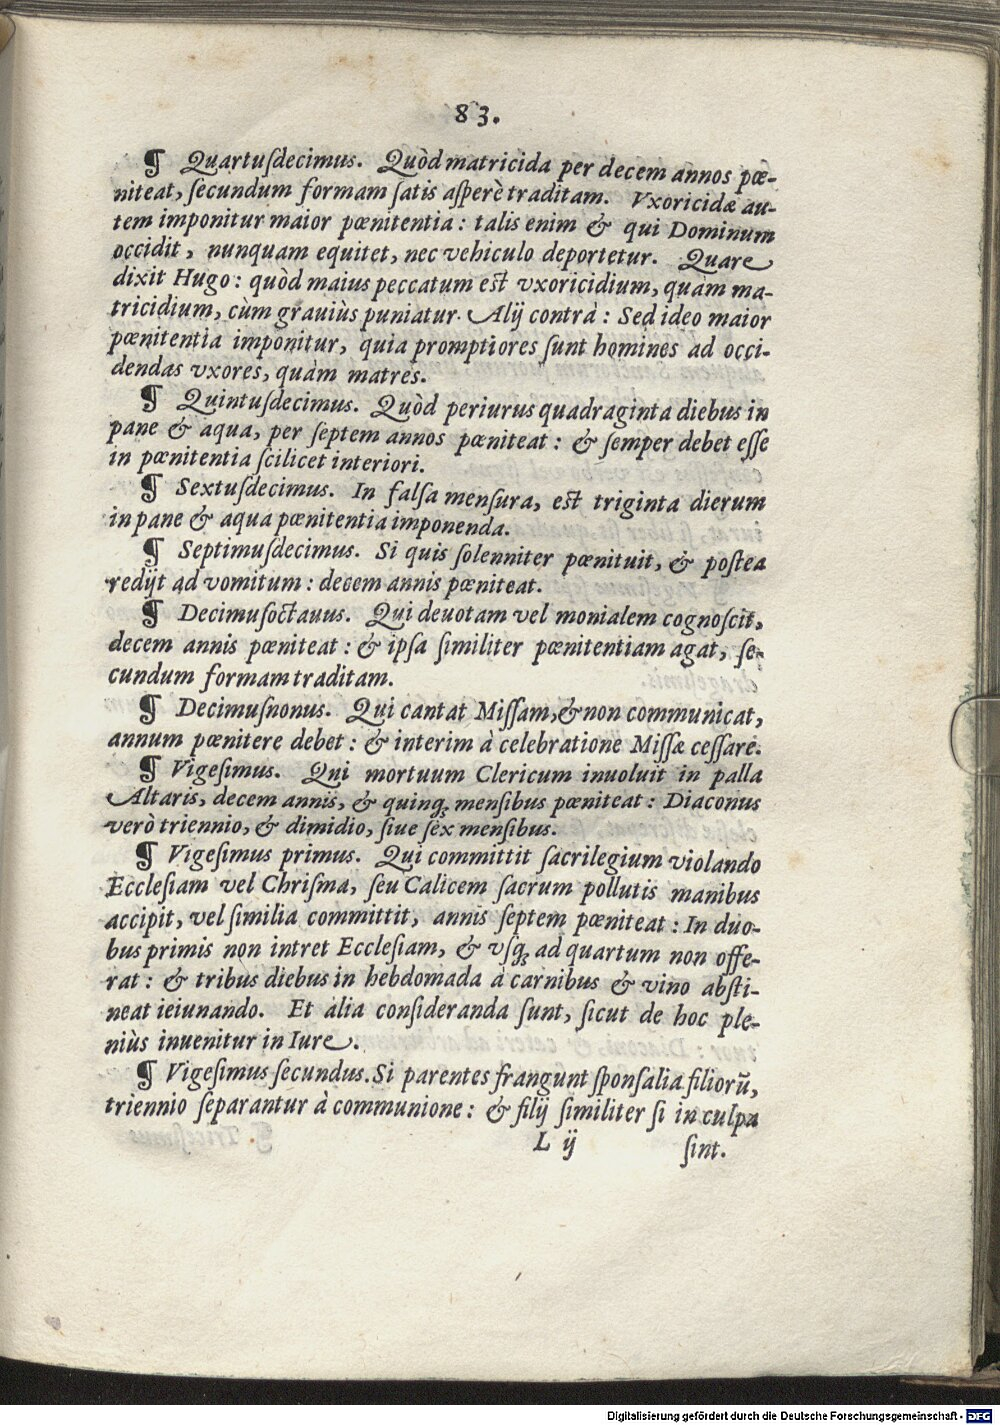 83.
¶ Quartusdecimus. Quòd matricida per decem annos pœ-
niteat, secundum formam satis asperè traditam. Vxoricidæ au-
tem imponitur maior pœnitentia: talis enim & qui Dominum
occidit, nunquam equitet, nec vehiculo deportetur. Quare
dixit Hugo: quòd maius peccatum est vxoricidium, quàm ma-
tricidium, cùm grauiùs puniatur. Alij contrà: Sed ideo maior
pœnitentia imponitur, quia promptiores sunt homines ad occi-
dendas vxores, quàm matres.
¶ Quintusdecimus. Quòd periurus quadraginta diebus in
pane & aqua, per septem annos pœniteat: & semper debet esse
in pœnitentia scilicet interiori.
¶ Sextusdecimus. In falsa mensura, est triginta dierum
in pane & aqua pœnitentia imponenda.
¶ Septimusdecimus. Si quis solenniter pœnituit, & postea
redijt ad vomitum: decem annis pœniteat.
¶ Decimusoctauus. Qui deuotam vel monialem cognoscit,
decem annis pœniteat: & ipsa similiter pœnitentiam agat, se-
cundum formam traditam.
¶ Decimusnonus. Qui cantat Missam, & non communicat,
annum pœnitere debet: & interim à celebratione Missæ cessare.
¶ Vigesimus. Qui mortuum Clericum inuoluit in palla
Altaris, decem annis, & quinq; mensibus pœniteat: Diaconus
verò triennio, & dimidio, siue sex mensibus.
¶ Vigesimus primus. Qui committit sacrilegium violando
Ecclesiam vel Chrisma, seu Calicem sacrum pollutis manibus
accipit, vel similia committit, annis septem pœniteat: In duo-
bus primis non intret Ecclesiam, & vsq; ad quartum non offe-
rat: & tribus diebus in hebdomada à carnibus & vino absti-
neat ieiunando. Et alia consideranda sunt, sicut de hoc ple-
niùs inuenitur in Iure.
¶ Vigesimus secundus. Si parentes frangunt sponsalia filiorũ,
triennio separantur à communione: & filij similiter si in culpa
L ij sint.
Digitalisierung gefördert durch die Deutsche Forschungsgemeinschaft - DFG